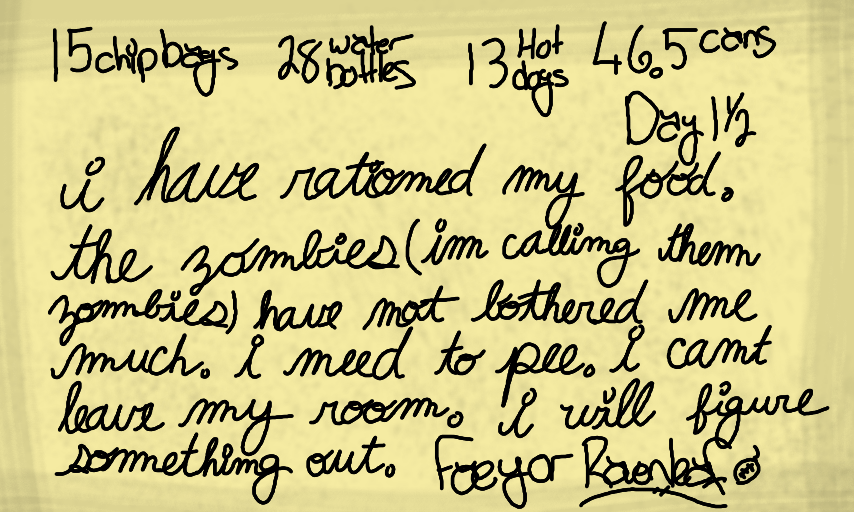 15 chip bags 28 water bottles 13 Hot dogs 46.5 cans
Day 1 1/2
i have rationed my food.
the zombies (im calling them
zombies) have not bothered me
much. i need to pee. i cant
leave my room. i will figure
something out. Foeyor